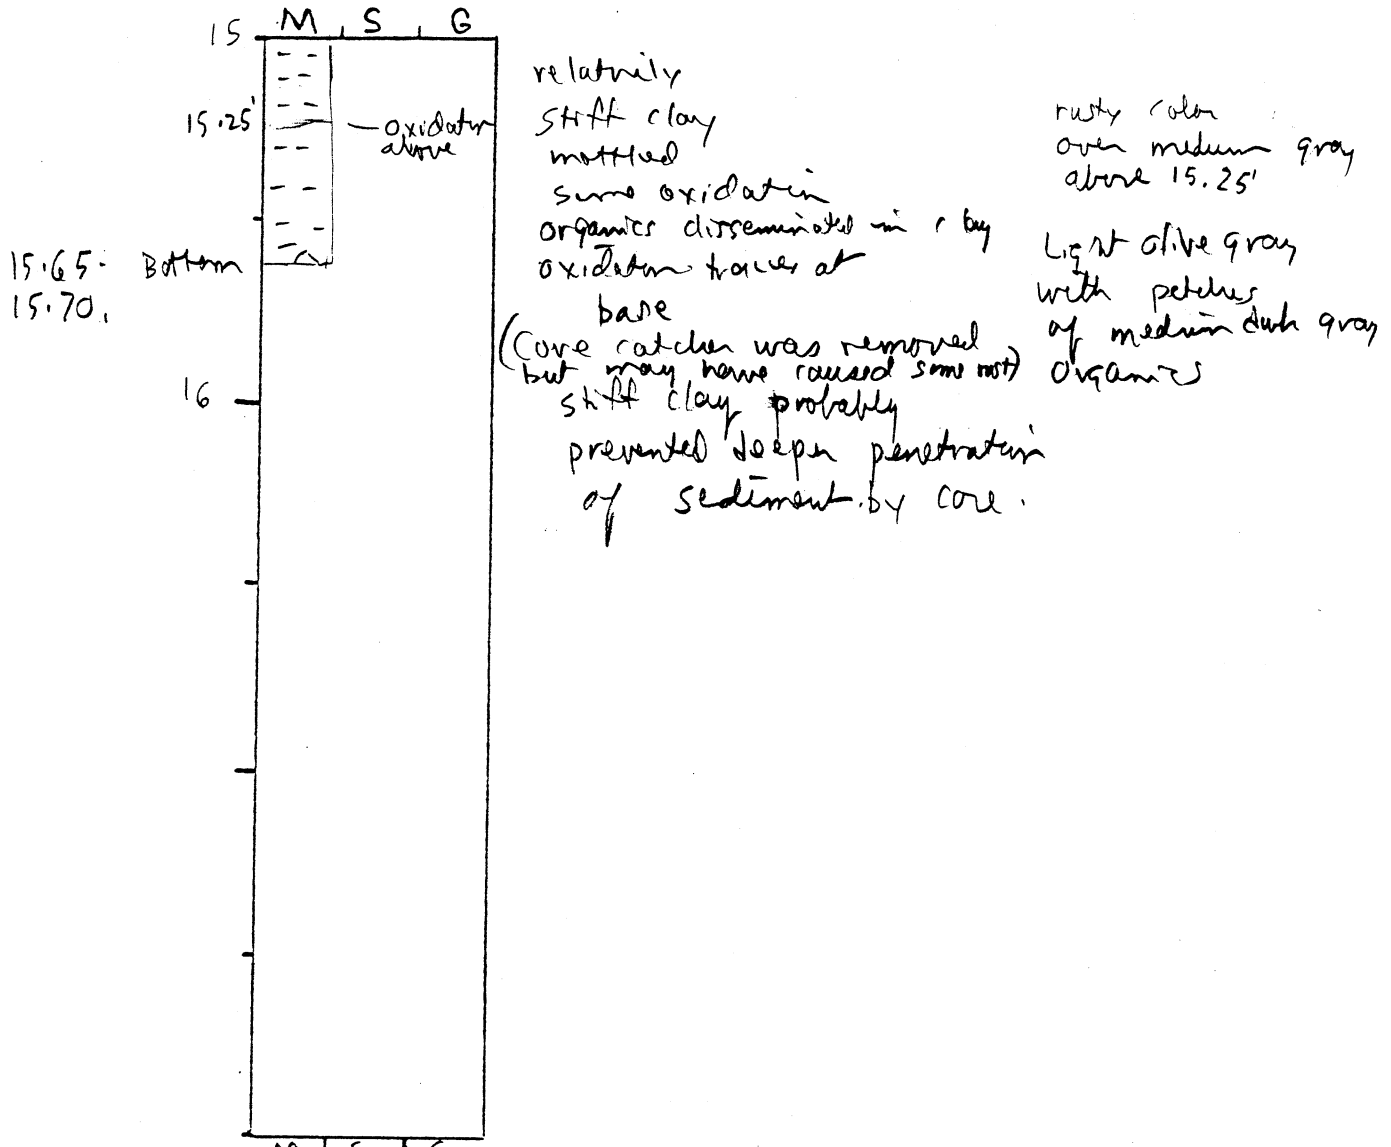 M S G
15
15.25'
— oxidation
above
15.65- Bottom
15.70.
16
relatively
stiff clay
mottled
some oxidation
organics disseminated in clay
oxidation traces at
base
(core catcher was removed
but may have caused some rust)
stiff clay probably
prevented deeper penetration
of sediment by core.
rusty color
over medium gray
above 15.25'
Light olive gray
with patches
of medium dark gray
organics
M S G